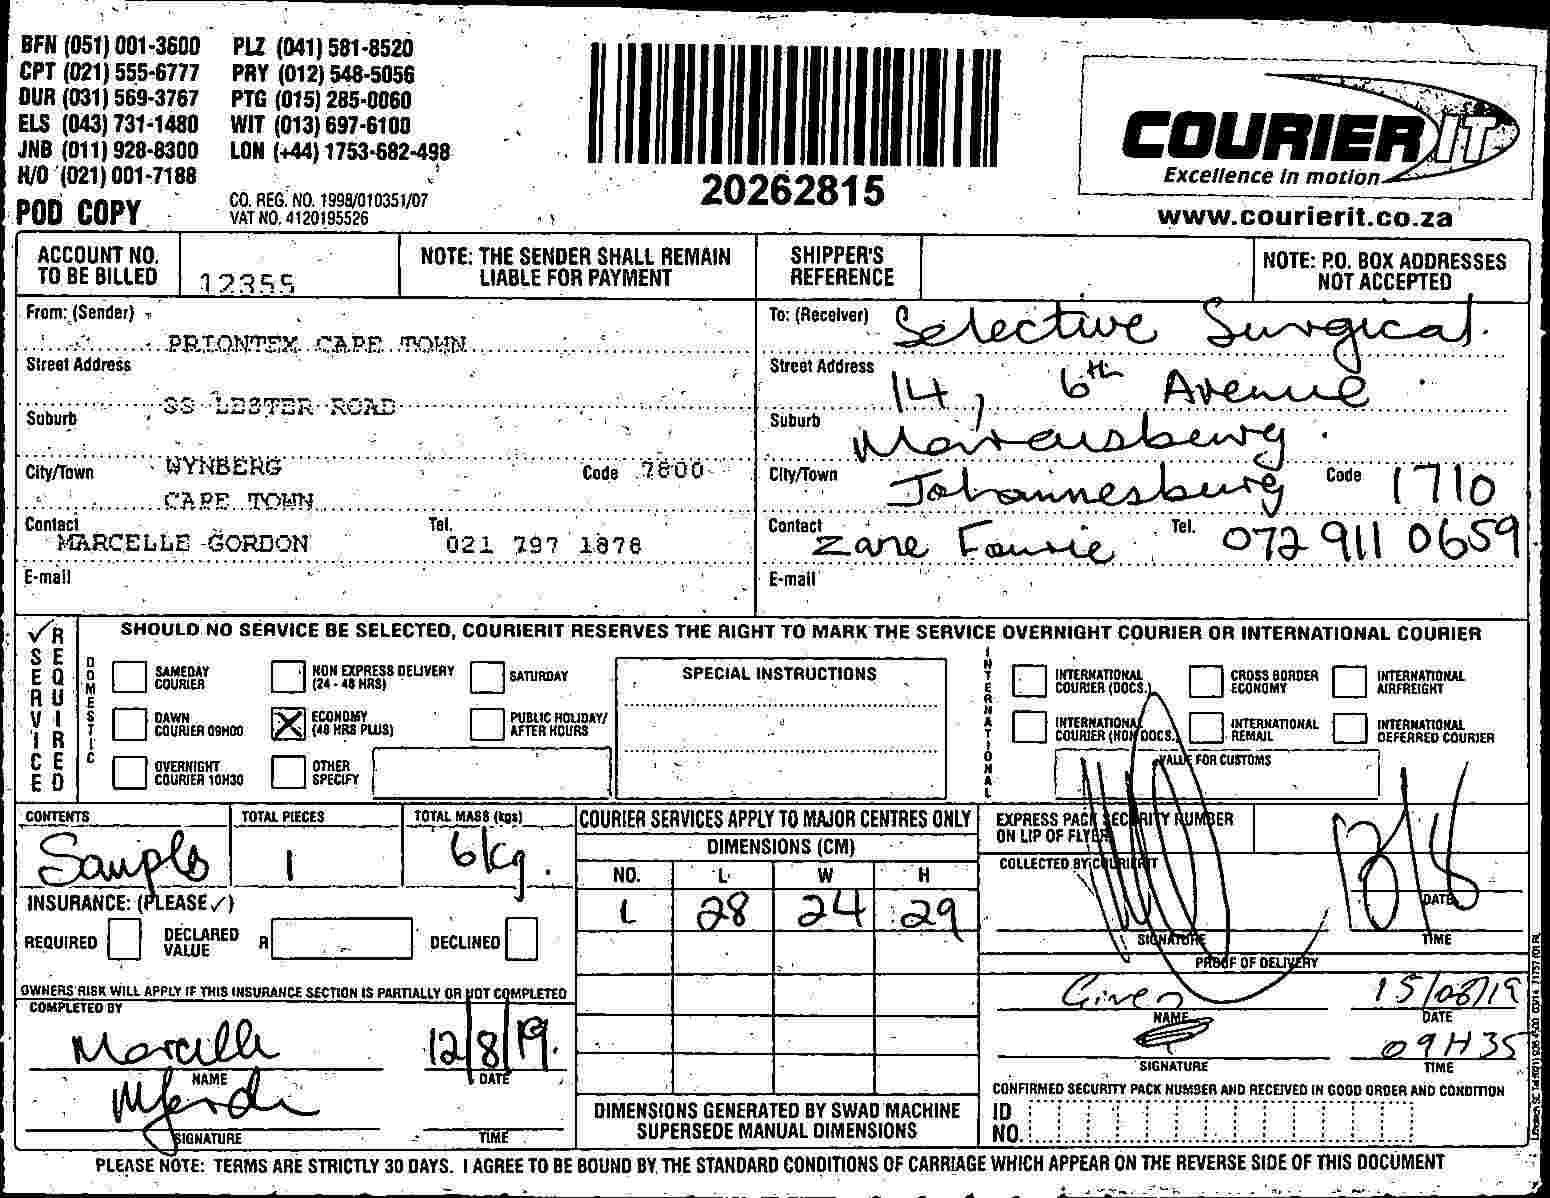 BFN (051) 001-3600 PLZ (041) 581-8520
CPT (021) 555-6777 PRY (012) 548-5056
DUR (031) 569-3767 PTG (015) 285-0060
ELS (043) 731-1480 WIT (013) 697-6100
JNB (011) 928-8300 LON (+44) 1753-682-498
H/O (021) 001-7188
POD COPY
CO. REG. NO. 1998/010351/07
VAT NO. 4120195526
20262815
COURIER IT
Excellence in motion
www.courierit.co.za
ACCOUNT NO. TO BE BILLED 12355
NOTE: THE SENDER SHALL REMAIN LIABLE FOR PAYMENT
SHIPPER'S REFERENCE
NOTE: P.O. BOX ADDRESSES NOT ACCEPTED
From: (Sender)
PRIONTEX CAPE TOWN
Street Address
SS LESTER ROAD
Suburb
WYNBERG
City/Town Code 7800
CAPE TOWN
Contact MARCELLE GORDON Tel. 021 797 1878
E-mail
To: (Receiver) Selective Surgical.
Street Address 14, 6th Avenue
Suburb
City/Town Johannesburg Code 1710
Contact Zane Fourie Tel. 072 911 0659
E-mail
SERVICE REQUIRED
SHOULD NO SERVICE BE SELECTED, COURIERIT RESERVES THE RIGHT TO MARK THE SERVICE OVERNIGHT COURIER OR INTERNATIONAL COURIER
DOMESTIC
SAMEDAY COURIER
NON EXPRESS DELIVERY (24 - 48 HRS)
SATURDAY
DAWN COURIER 09H00
ECONOMY (48 HRS PLUS)
PUBLIC HOLIDAY/ AFTER HOURS
OVERNIGHT COURIER 10H30
OTHER SPECIFY
SPECIAL INSTRUCTIONS
INTERNATIONAL
INTERNATIONAL COURIER (DOCS.)
CROSS BORDER ECONOMY
INTERNATIONAL AIRFREIGHT
INTERNATIONAL COURIER (NON DOCS.)
INTERNATIONAL REMAIL
INTERNATIONAL DEFERRED COURIER
VALUE FOR CUSTOMS
CONTENTS
TOTAL PIECES 1
TOTAL MASS (kgs) 6kg.
INSURANCE: (PLEASE ✓)
REQUIRED
DECLARED VALUE R
DECLINED
OWNERS RISK WILL APPLY IF THIS INSURANCE SECTION IS PARTIALLY OR NOT COMPLETED
COMPLETED BY
Marcelle 12/8/19.
NAME DATE
SIGNATURE TIME
COURIER SERVICES APPLY TO MAJOR CENTRES ONLY
DIMENSIONS (CM)
NO. L W H
1 28 24 29
DIMENSIONS GENERATED BY SWAD MACHINE SUPERSEDE MANUAL DIMENSIONS
EXPRESS PACK SECURITY NUMBER ON LIP OF FLYER
COLLECTED BY COURIERIT
DATE
SIGNATURE TIME
PROOF OF DELIVERY
Given 15/08/19
NAME DATE
09H35
SIGNATURE TIME
CONFIRMED SECURITY PACK NUMBER AND RECEIVED IN GOOD ORDER AND CONDITION
ID NO.
PLEASE NOTE: TERMS ARE STRICTLY 30 DAYS. I AGREE TO BE BOUND BY THE STANDARD CONDITIONS OF CARRIAGE WHICH APPEAR ON THE REVERSE SIDE OF THIS DOCUMENT